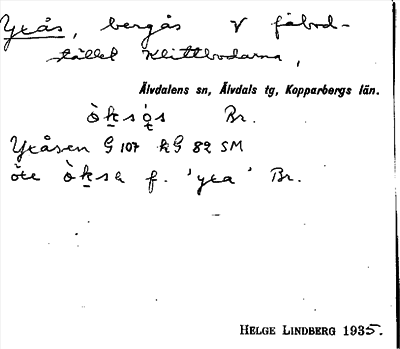 Yxås, bergås V fäbod-
stället Klittbodarna,
Älvdalens sn, Älvdals tg, Kopparbergs län.
Br.
Yxåsen G 107 kG 82 SM
f. 'yxa' Br.
HELGE LINDBERG 1935.